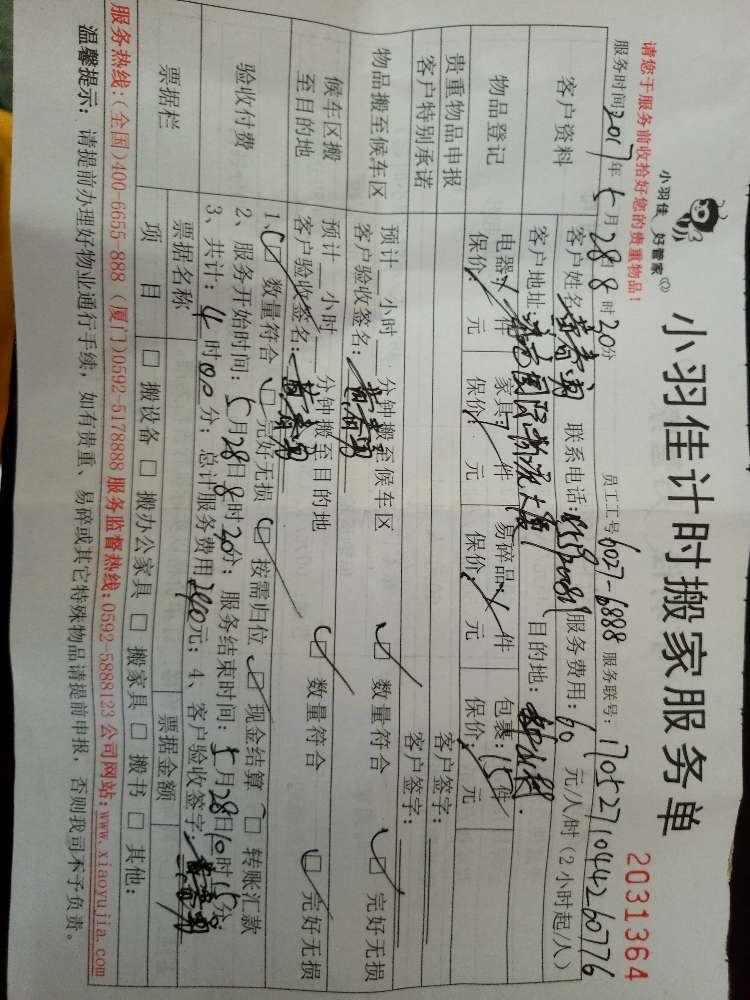 小羽佳计时搬家服务单
小羽佳 好管家
2031364
请您于服务前收拾好您的贵重物品!
员工工号 6027-6888 服务联号: 170527104426 0776
服务时间 2017年5月28日8时20分
客户资料 客户姓名: 联系电话: 服务费用: 60 元/人/时(2小时起/人)
客户地址: 国际物流大厦 目的地:
物品登记 电器: 件 家具: 件 易碎品: 件 包裹: 15件
保价: 元 保价: 元 保价: 元 保价: 元
贵重物品申报 客户签字:
客户特别承诺 客户签字:
物品搬至候车区 预计 小时 分钟搬至候车区 ☑ 数量符合 ☑ 完好无损
客户验收签名:
候车区搬至目的地 预计 小时 分钟搬至目的地 ☑ 数量符合 ☑ 完好无损
客户验收签名:
验收付费 1、☑ 数量符合 ☑ 完好无损 ☑ 按需归位 ☑ 现金结算 □ 转账汇款
2、服务开始时间: 5月28日8时20分; 服务结束时间: 5月28日10时15分
3、共计: 4时00分; 总计服务费用240元; 4、客户验收签字:
票据栏 票据名称 票据金额
项目 □ 搬设备 □ 搬办公家具 □ 搬家具 □ 搬书 □ 其他:
服务热线:(全国)400-6655-888 (厦门)0592-5178888 服务监督热线:0592-5888123 公司网站:www.xiaoyujia.com
温馨提示: 请提前办理好物业通行手续, 如有贵重、易碎或其它特殊物品请提前申报, 否则我司不予负责。